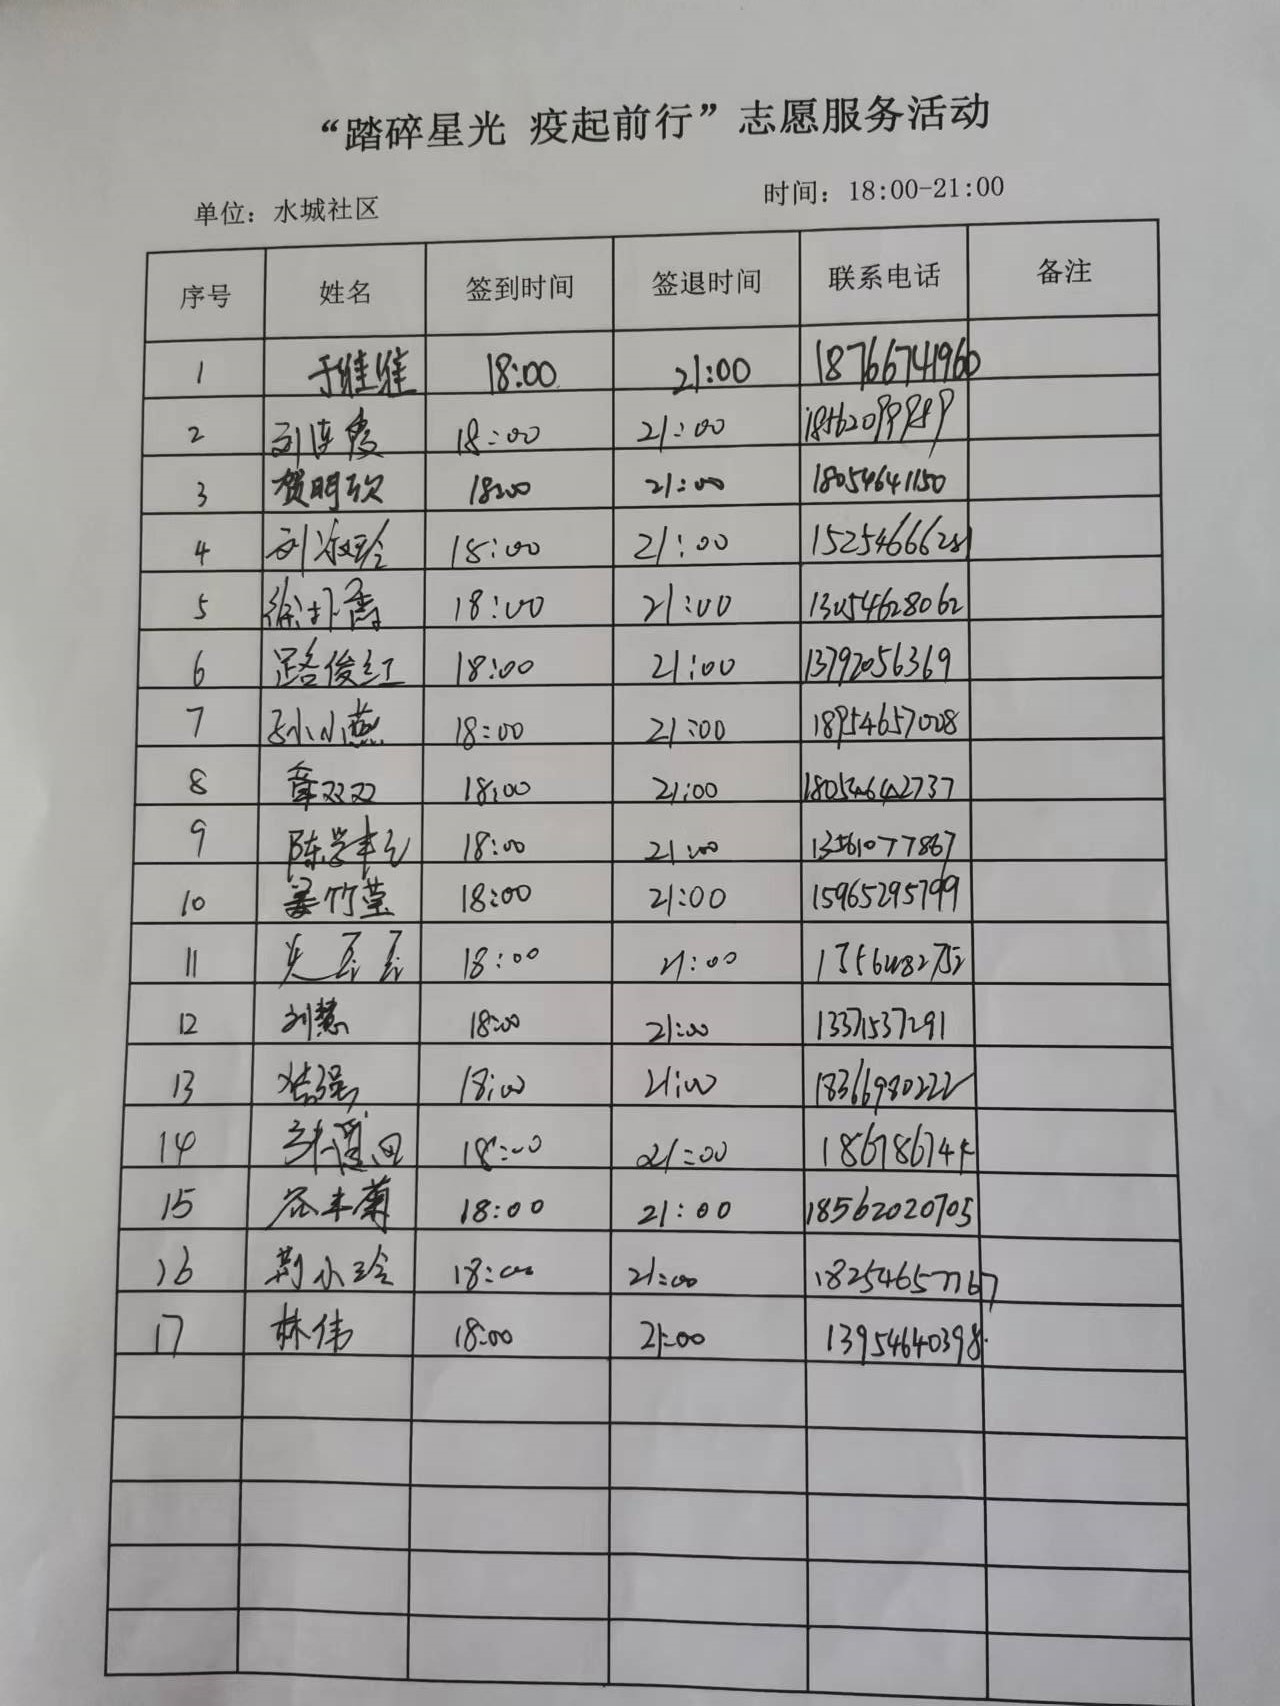 “踏碎星光 疫起前行”志愿服务活动
单位：水城社区 时间：18:00-21:00
序号 姓名 签到时间 签退时间 联系电话 备注
1 于维维 18:00 21:00 18766741960
2 刘连霞 18:00 21:00
3 贺明欣 18:00 21:00 18054641150
4 21:00
5 18:00 21:00
6 路俊红 18:00 21:00 13792056369
7 孙小燕 18:00 21:00 18954657008
8 章双双 18:00 21:00 18054642737
9 18:00 21:00 13561077867
10 姜竹莹 18:00 21:00 15965295799
11 18:00 21:00
12 刘慧 18:00 21:00 13371537291
13 18:00 21:00
14 18:00 21:00
15 18:00 21:00 18562020705
16 荆小玲 18:00 21:00 18254657767
17 林伟 18:00 21:00 13954640398